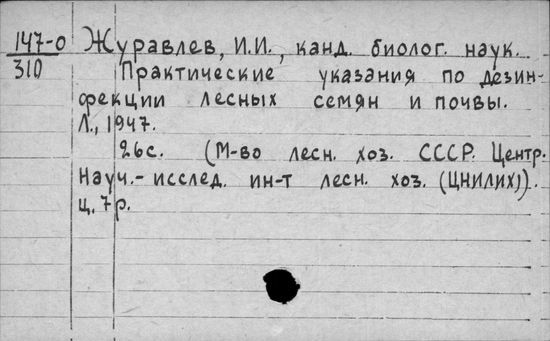 147-0 Журавлев, И.И., канд. биолог. наук.
310 Практические указания по дезин-
фекции лесных семян и почвы.
Л., 1947.
26с. (М-во лесн. хоз. СССР. Центр.
Науч.-исслед. ин-т лесн. хоз. (ЦНИЛИХ)).
ц. 7р.